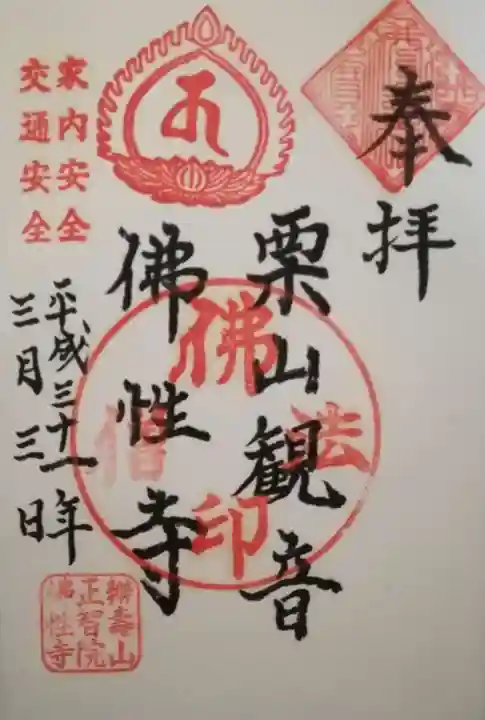 奉拝
栗山観音
佛性寺
平成三十一年
三月三日
家内安全
交通安全
佛
法
僧
印
正智院
佛性寺